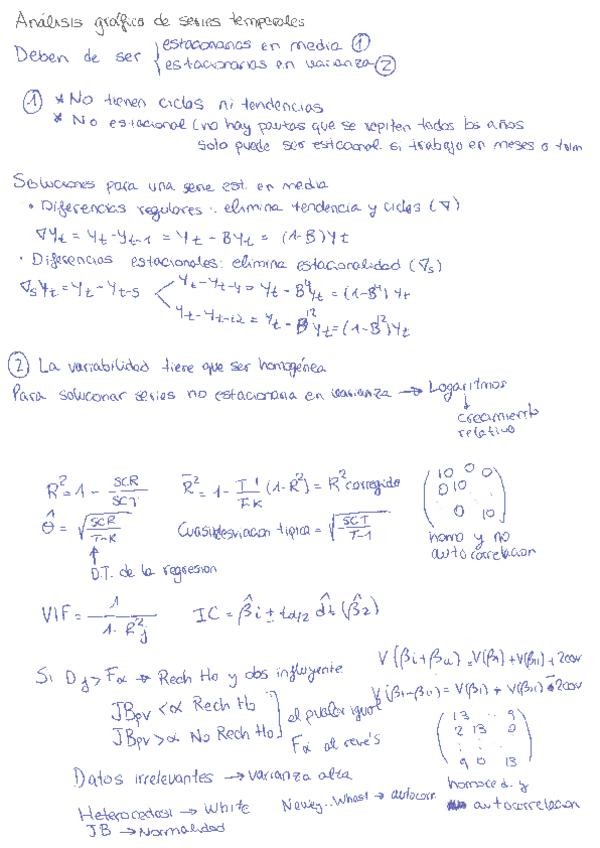 Análisis gráfico de series temporales
Deben de ser { estacionarias en media ①
estacionarias en varianza ②
① * No tienen ciclos ni tendencias
* No estacional (no hay pautas que se repiten todos los años
solo puede ser estacional si trabajo en meses o trim
Soluciones para una serie est. en media
• Diferencias regulares: elimina tendencia y ciclos (∇)
∇Yt = Yt - Yt-1 = Yt - BYt = (1-B)Yt
• Diferencias estacionales: elimina estacionalidad (∇s)
∇sYt = Yt - Yt-s
Yt - Yt-4 = Yt - B⁴Yt = (1-B⁴)Yt
Yt - Yt-12 = Yt - B¹²Yt = (1-B¹²)Yt
② La variabilidad tiene que ser homogénea
Para solucionar series no estacionaria en varianza → Logaritmos
↓
crecimiento
relativo
R² = 1 - SCR/SCT
R̄² = 1 - T-1/T-K (1-R²) = R² corregido
(10 0 0
0 10 .
0 10)
σ̂ = √SCR/T-K
Cuasidesviacion tipica = √SCT/T-1
homo y no
autocorrelacion
↑
D.T. de la regresion
VIF = 1/1-R²j
IC = β̂i ± tα/2 d̂t (β̂2)
Si Dj > Fα → Rech Ho y obs influyente
V(βi+βii) = V(βi) + V(βii) + 2cov
JBpv < α Rech Ho
V(βi-βii) = V(βi) + V(βii) - 2cov
JBpv > α No Rech Ho
el pvalor igual
Fα al revés
(13 . . 9
2 13 0
. . :
9 0 13)
Datos irrelevantes → varianza alta
homoced. y
autocorrelacion
Heterocedast → White
Newey..West → autocorr.
JB → Normalidad